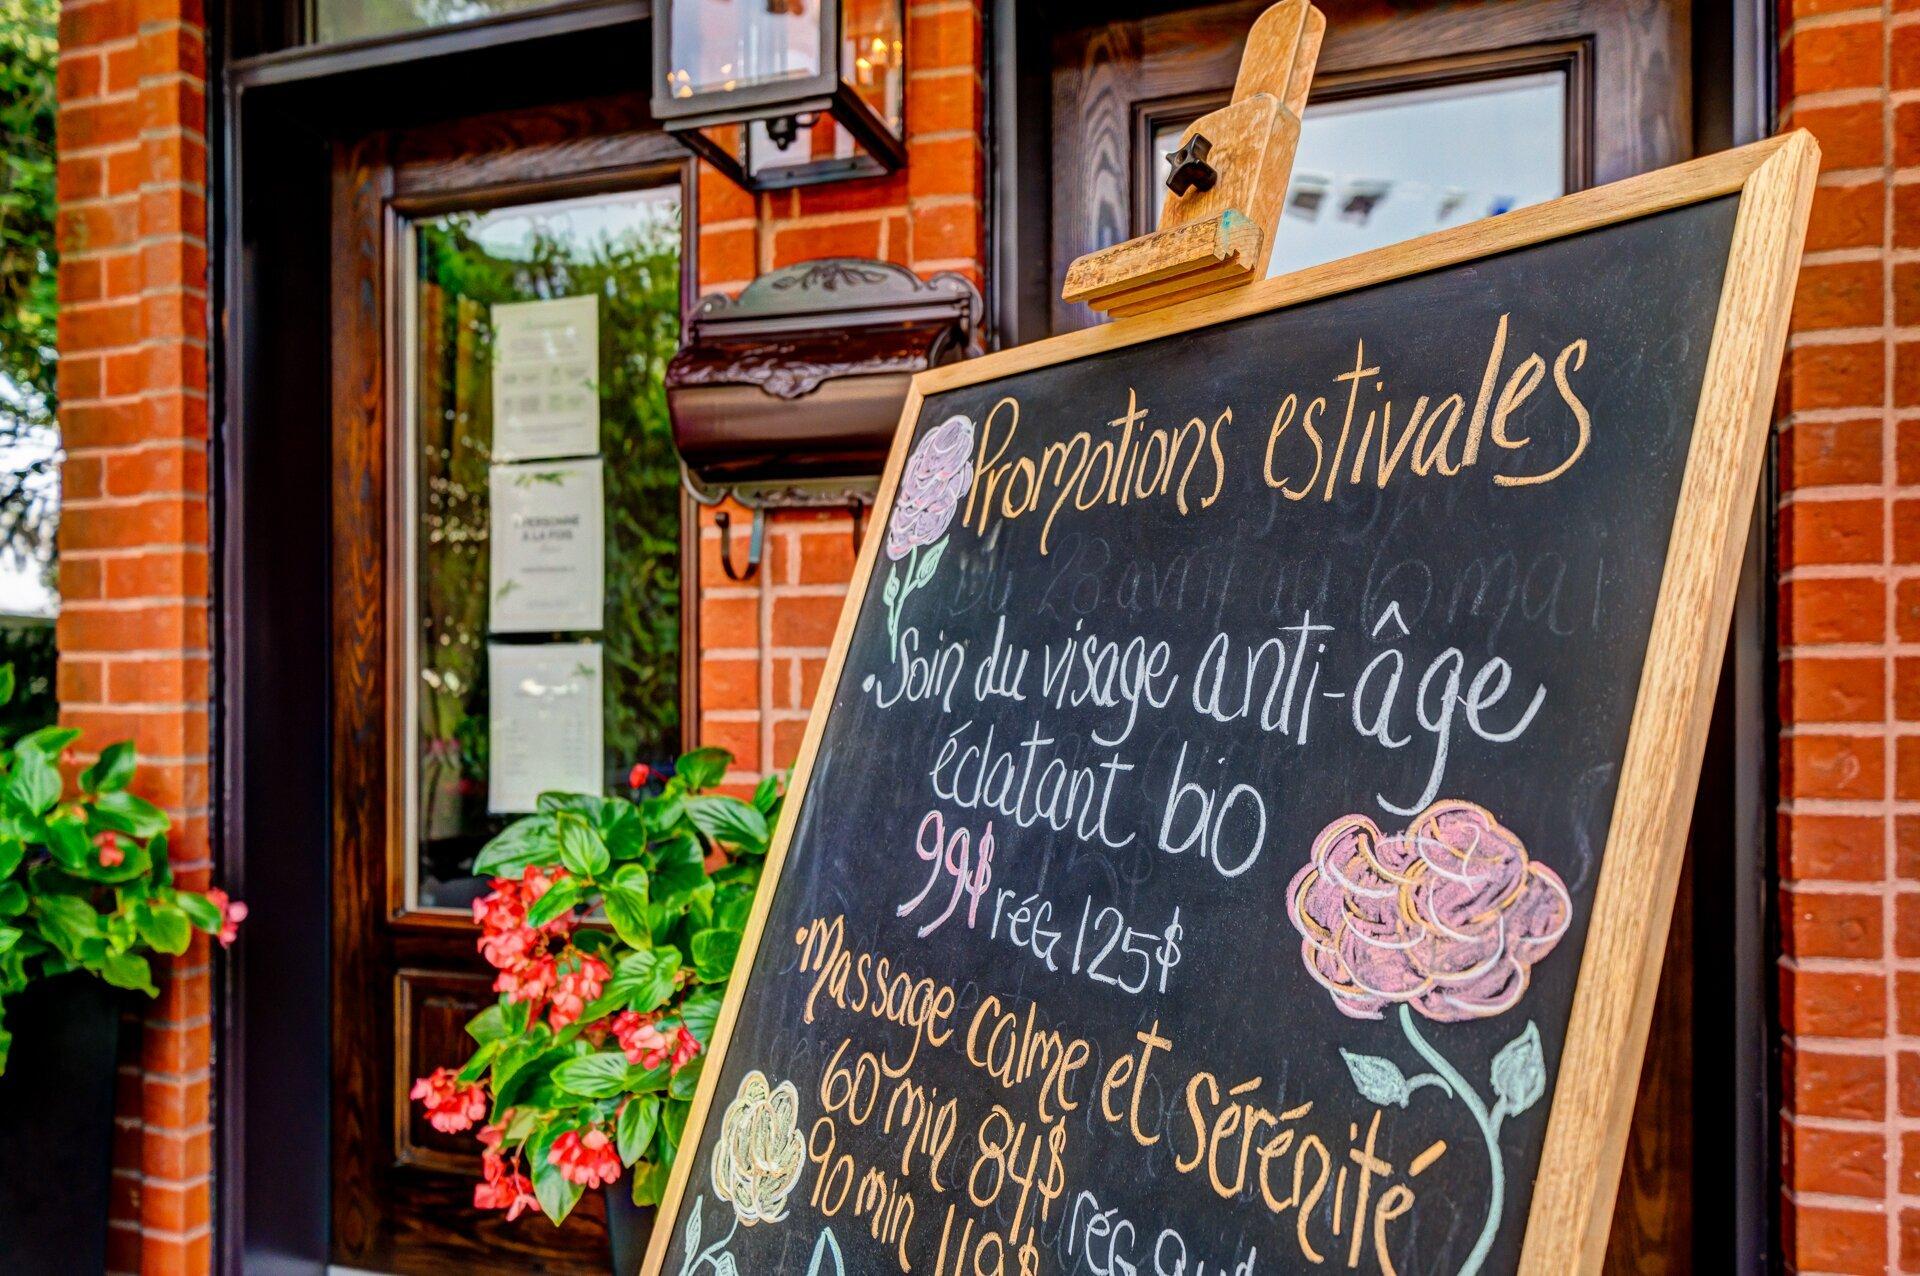 Promotions estivales
Du 28 avril au 6 mai
• Soin du visage anti-âge
éclatant bio
99$ rég 125$
• Massage calme et sérénité
60 min 84$
rég
90 min 119$
PERSONNE
À LA FOIS